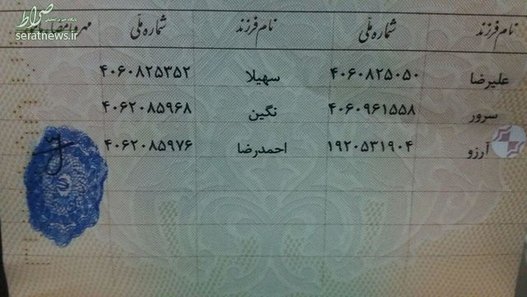 صراط
seratnews.ir
نام فرزند شماره ملّی نام فرزند شماره ملّی
علیرضا ۴۰۶۰۸۲۵۰۵۰ سهیلا ۴۰۶۰۸۲۵۳۵۲
سرور ۴۰۶۰۹۶۱۵۵۸ نگین ۴۰۶۲۰۸۵۹۶۸
آرزو ۱۹۲۰۵۳۱۹۰۴ احمدرضا ۴۰۶۲۰۸۵۹۷۶